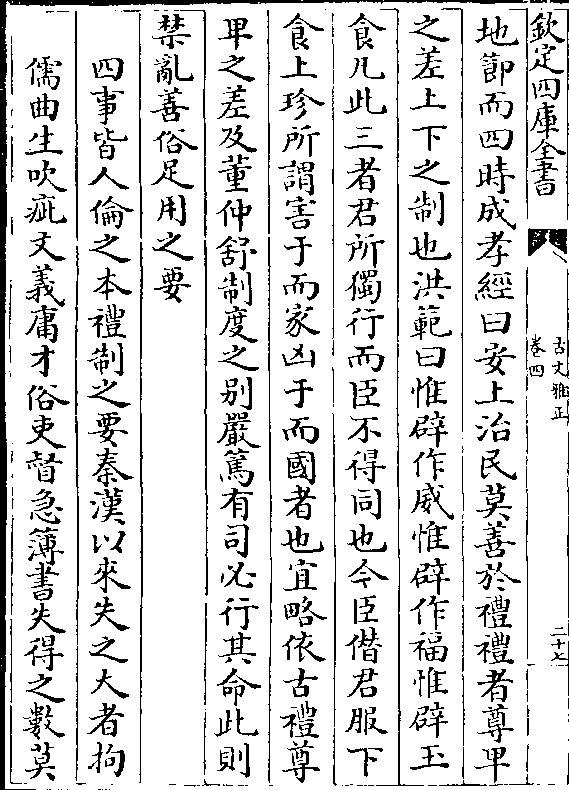 欽定四庫全書
古文雅正
卷四
二十七
地節而四時成孝經曰安上治民莫善於禮禮者尊卑
之差上下之制也洪範曰惟辟作威惟辟作福惟辟玉
食凡此三者君所獨行而臣不得同也今臣僭君服下
食上珍所謂害于而家凶于而國者也宜略依古禮尊
卑之差及董仲舒制度之别嚴篤有司必行其命此則
禁亂善俗足用之要
四事皆人倫之本禮制之要秦漢以來失之大者拘
儒曲生吹疵文義庸才俗吏督急簿書失得之數莫